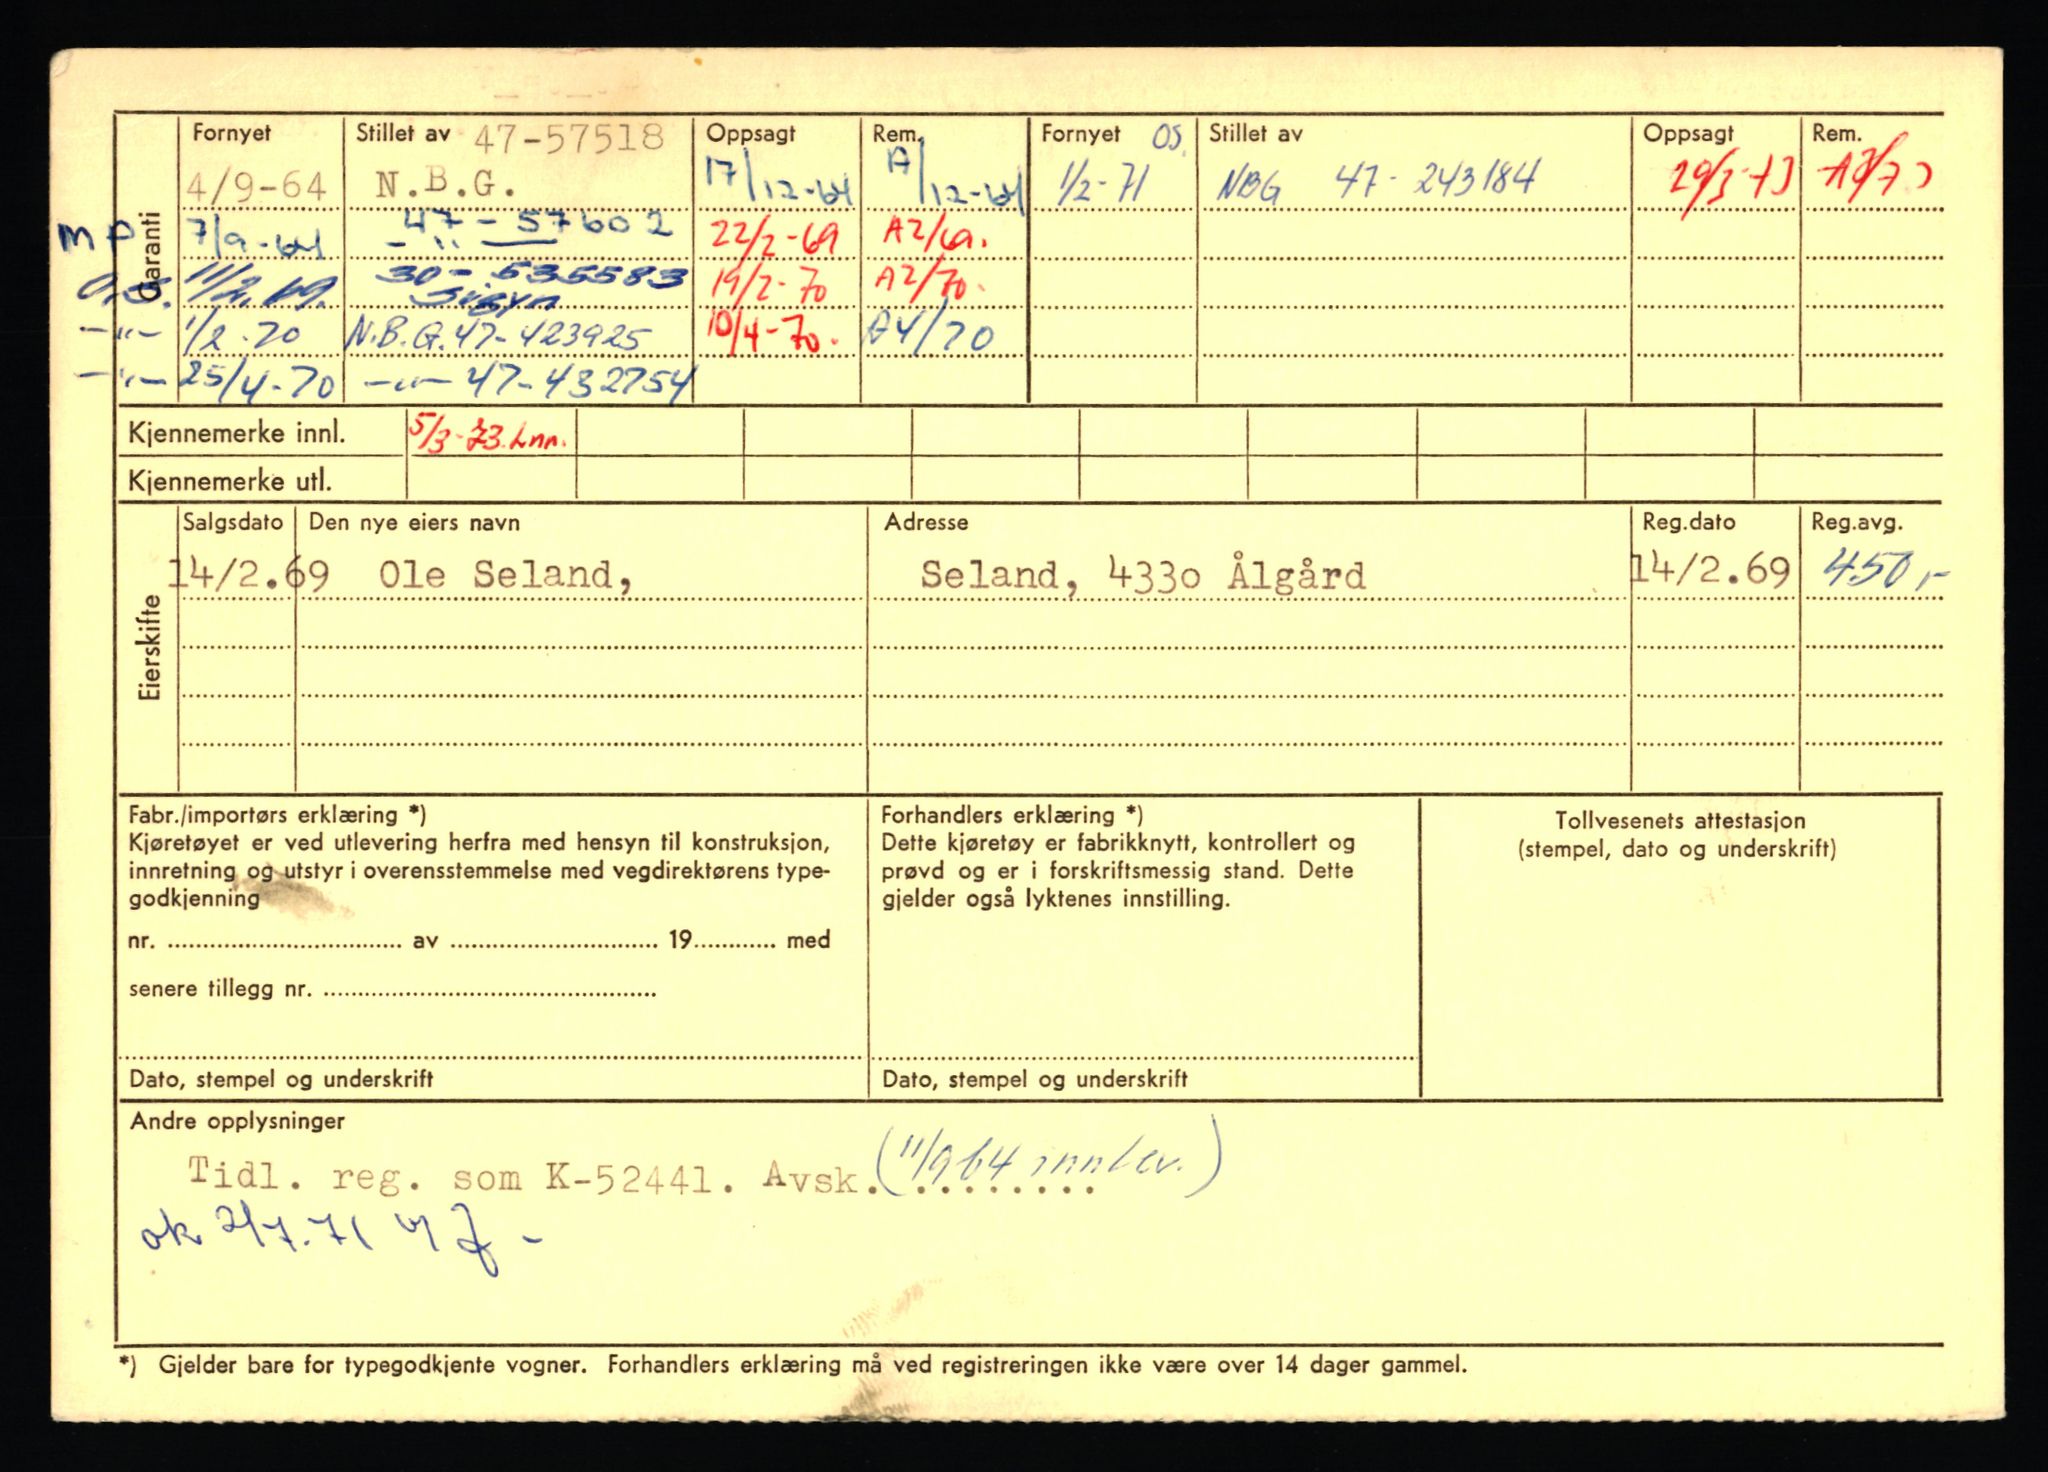 Garanti
Fornyet Stillet av 47-57518 Oppsagt Rem. Fornyet OS. Stillet av Oppsagt Rem.
4/9-64 N.B.G. 17/12-64 A/12-64 1/2-71 NBG 47-243184 29/3-73
MP 7/9-64 47-57602 -"- 22/2-69 A2/69.
O.S. 11/2.69. 30-535583 Sigyn 19/2-70 A2/70.
-"- 1/2-70 N.B.G. 47-423925 10/4-70. A4/70
-"- 25/4-70 -"- 47-432754
Kjennemerke innl. 5/3-73 Inn.
Kjennemerke utl.
Eierskifte
Salgsdato Den nye eiers navn Adresse Reg.dato Reg.avg.
14/2.69 Ole Seland, Seland, 4330 Ålgård 14/2.69 450,-
Fabr./importørs erklæring *)
Kjøretøyet er ved utlevering herfra med hensyn til konstruksjon,
innretning og utstyr i overensstemmelse med vegdirektørens type-
godkjenning
nr. .................... av .................... 19............ med
senere tillegg nr. ....................
Dato, stempel og underskrift
Forhandlers erklæring *)
Dette kjøretøy er fabrikknytt, kontrollert og
prøvd og er i forskriftsmessig stand. Dette
gjelder også lyktenes innstilling.
Dato, stempel og underskrift
Tollvesenets attestasjon
(stempel, dato og underskrift)
Andre opplysninger
Tidl. reg. som K-52441. Avsk. (11/9 64 innlev.)
ok 2/7.71
*) Gjelder bare for typegodkjente vogner. Forhandlers erklæring må ved registreringen ikke være over 14 dager gammel.